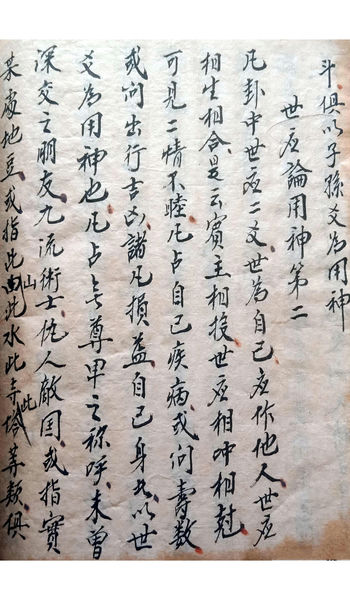 斗俱以子孫爻為用神
世应論用神第二
凡卦中世应二爻世為自己应作他人世应
相生相合是云賓主相投世应相冲相尅
可見二情不睦凡占自己疾病或問壽數
或问出行吉凶諸凡損益自己身者以世
爻為用神也凡占无尊卑之称呼未曾
深交之朋友九流術士仇人敵国或指實
某處地豆或指此山此水此寺此塔等類俱